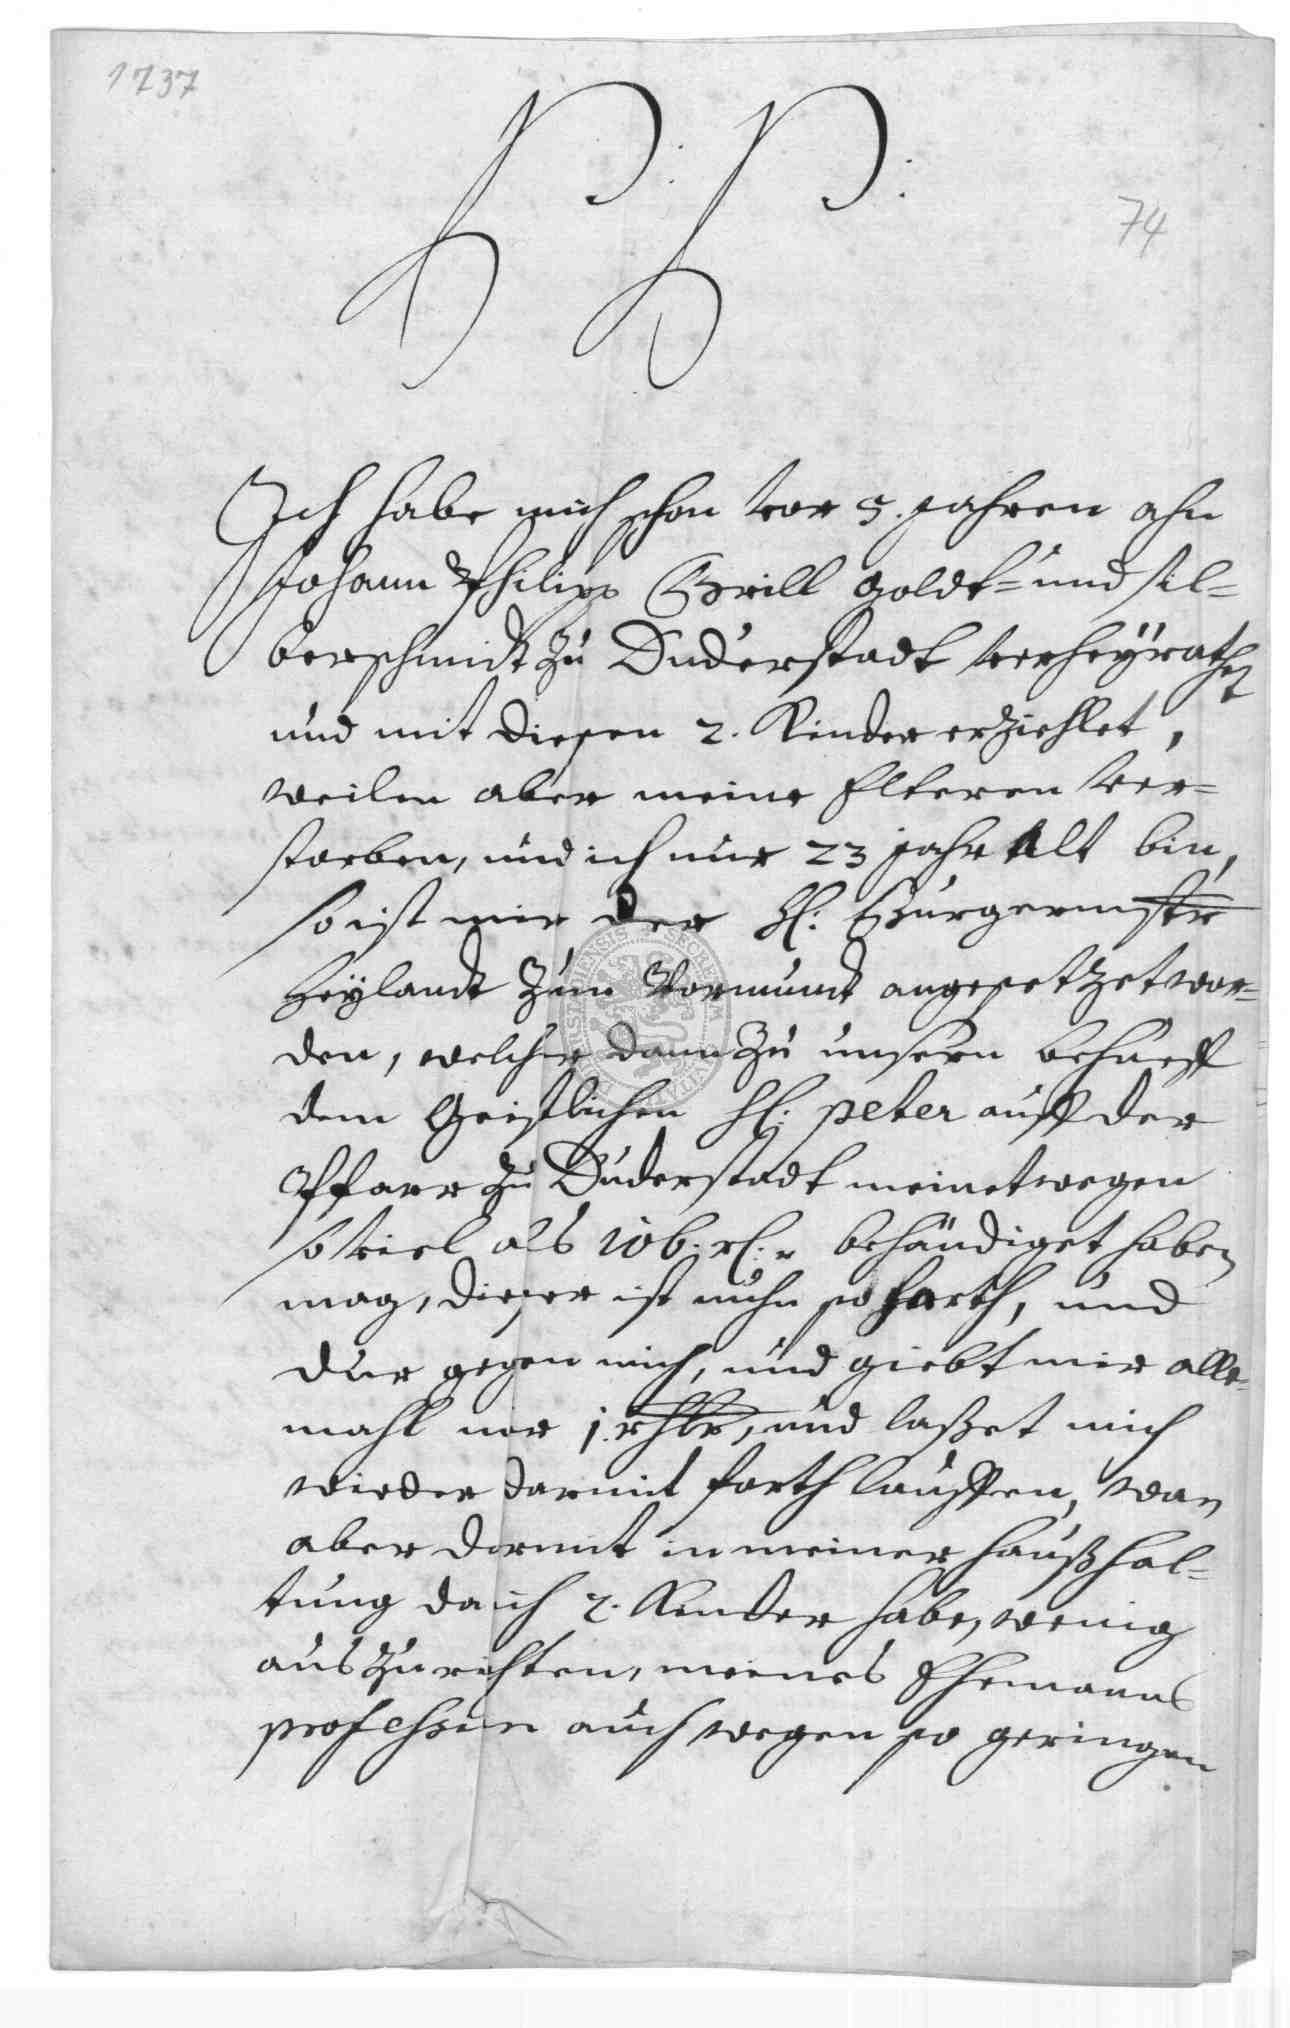 1737
P: P:
74
Ich habe mich schon vor 5. Jahren ahn
Johann Philipp Brill goldt= und sil=
berschmidt zu Duderstadt verheÿrathet
und mit diesen 2. Kinder erziehlet,
weilen aber meine Elteren ver=
storben, und ich nur 23 jahr alt bin,
so ist mir der H: Bürgermstr
Heÿlandt zum Vormundt angesetzet wor=
den, welcher dann zu unsern behueff
dem Geistlichen H: peter auff der
Pfarr zu Duderstadt meinetwegen
so viel als behändiget haben
mag, dieser ist nuhn so harth, und
gegen mich, und giebt mir alle=
mahl nur 1. rthlr, und laßet mich
wieder darmit forth lauffen, wan
aber darmit in meiner haußhal=
tung da ich 2. Kinder habe, wenig
auszurichten, meines Ehemanns
profession auch wegen so geringen